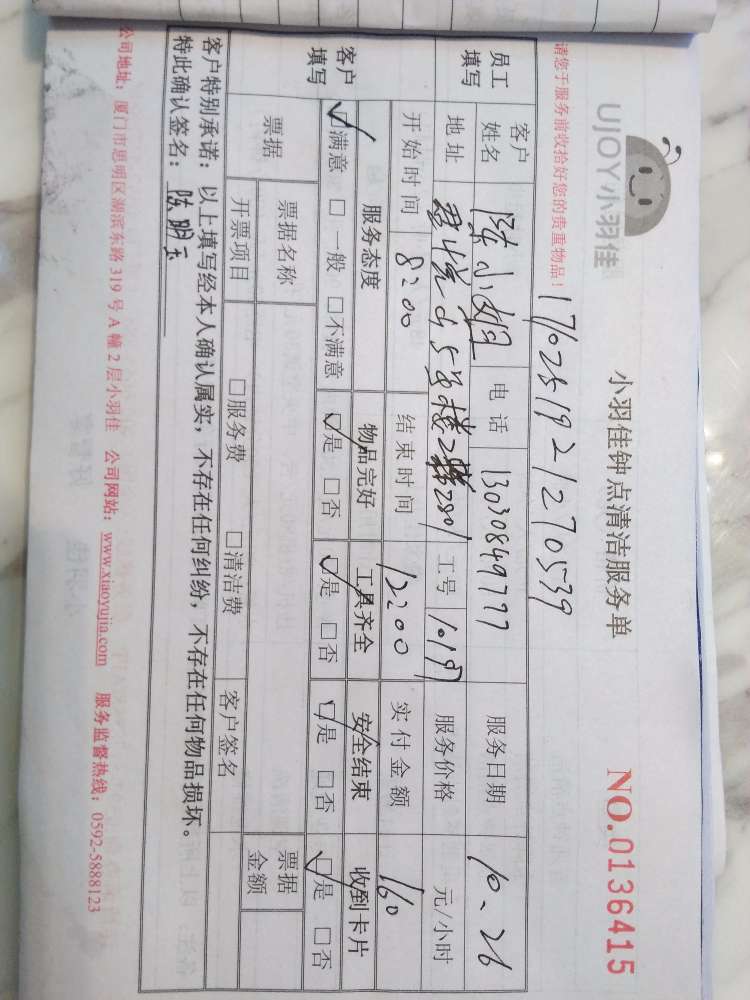 UJOY小羽佳
小羽佳钟点清洁服务单
NO.0136415
请您于服务前收拾好您的贵重物品！
170251921270539
员工填写
客户姓名 陈小姐 电话 13030849777 服务日期 10、26
地址 君悦山5号楼2梯2801 工号 服务价格 元/小时
开始时间 8:00 结束时间 12:00 实付金额 160
客户填写
服务态度 物品完好 工具齐全 安全结束 收到卡片
☑满意 □一般 □不满意 ☑是 □否 ☑是 □否 ☑是 □否 ☑是 □否
票据 票据名称 票据金额
开票项目 □服务费 □清洁费 客户签名
客户特别承诺：以上填写经本人确认属实，不存在任何纠纷，不存在任何物品损坏。
特此确认签名：陈明玉
公司地址：厦门市思明区湖滨东路319号A幢2层小羽佳 公司网站：www.xiaoyujia.com 服务监督热线：0592-5888123